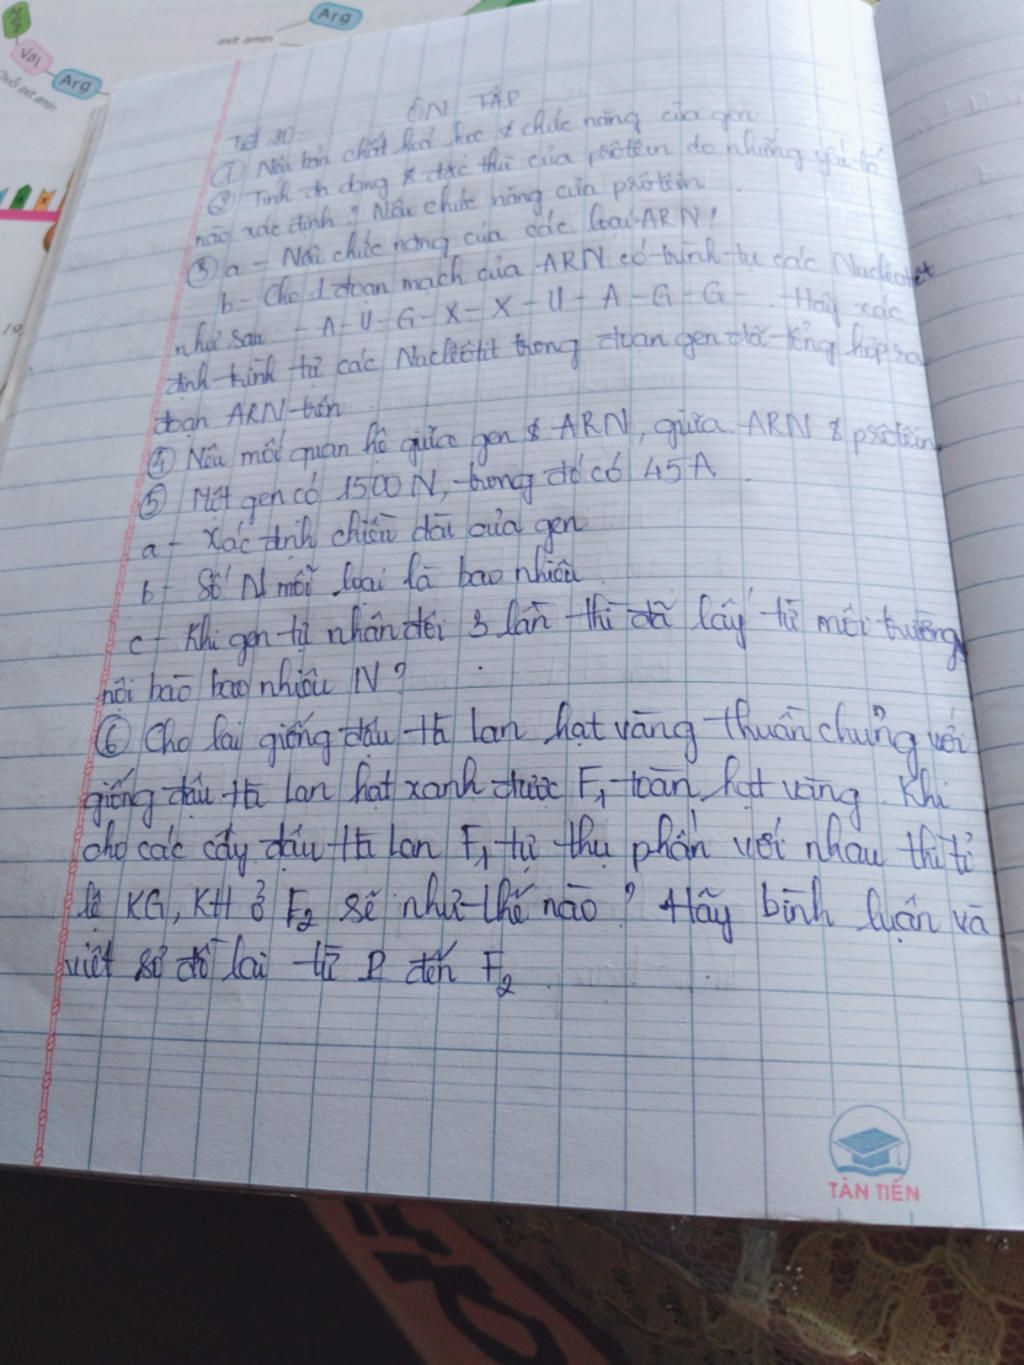 Arg
axit amin
Val
Arg
Chuỗi axit amin
ÔN TẬP
Tiết
① Nêu bản chất hoá học & chức năng của gen
② Tính đa dạng & đặc thù của prôtêin do những yếu tố
nào xác định? Nêu chức năng của prôtêin
③ a - Nêu chức năng của các loại ARN!
b - Cho 1 đoạn mạch của ARN có trình tự các Nuclêôtit
như sau - A - U - G - X - X - U - A - G - G - . Hãy xác
định trình tự các Nuclêôtit trong đoạn gen đã tổng hợp ra
đoạn ARN trên
④ Nêu mối quan hệ giữa gen & ARN, giữa ARN & prôtêin.
⑤ Một gen có 1500 N, trong đó có 45 A
a - Xác định chiều dài của gen
b - Số N mỗi loại là bao nhiêu
c - Khi gen tự nhân đôi 3 lần thì đã lấy từ môi trường
nội bào bao nhiêu N?
⑥ Cho lai giống đậu Hà Lan hạt vàng thuần chủng với
giống đậu Hà Lan hạt xanh được F1 toàn hạt vàng. Khi
cho các cây đậu Hà Lan F1 tự thụ phấn với nhau thì tỉ
lệ KG, KH ở F2 sẽ như thế nào? Hãy bình luận và
viết sơ đồ lai từ P đến F2
TÂN TIẾN